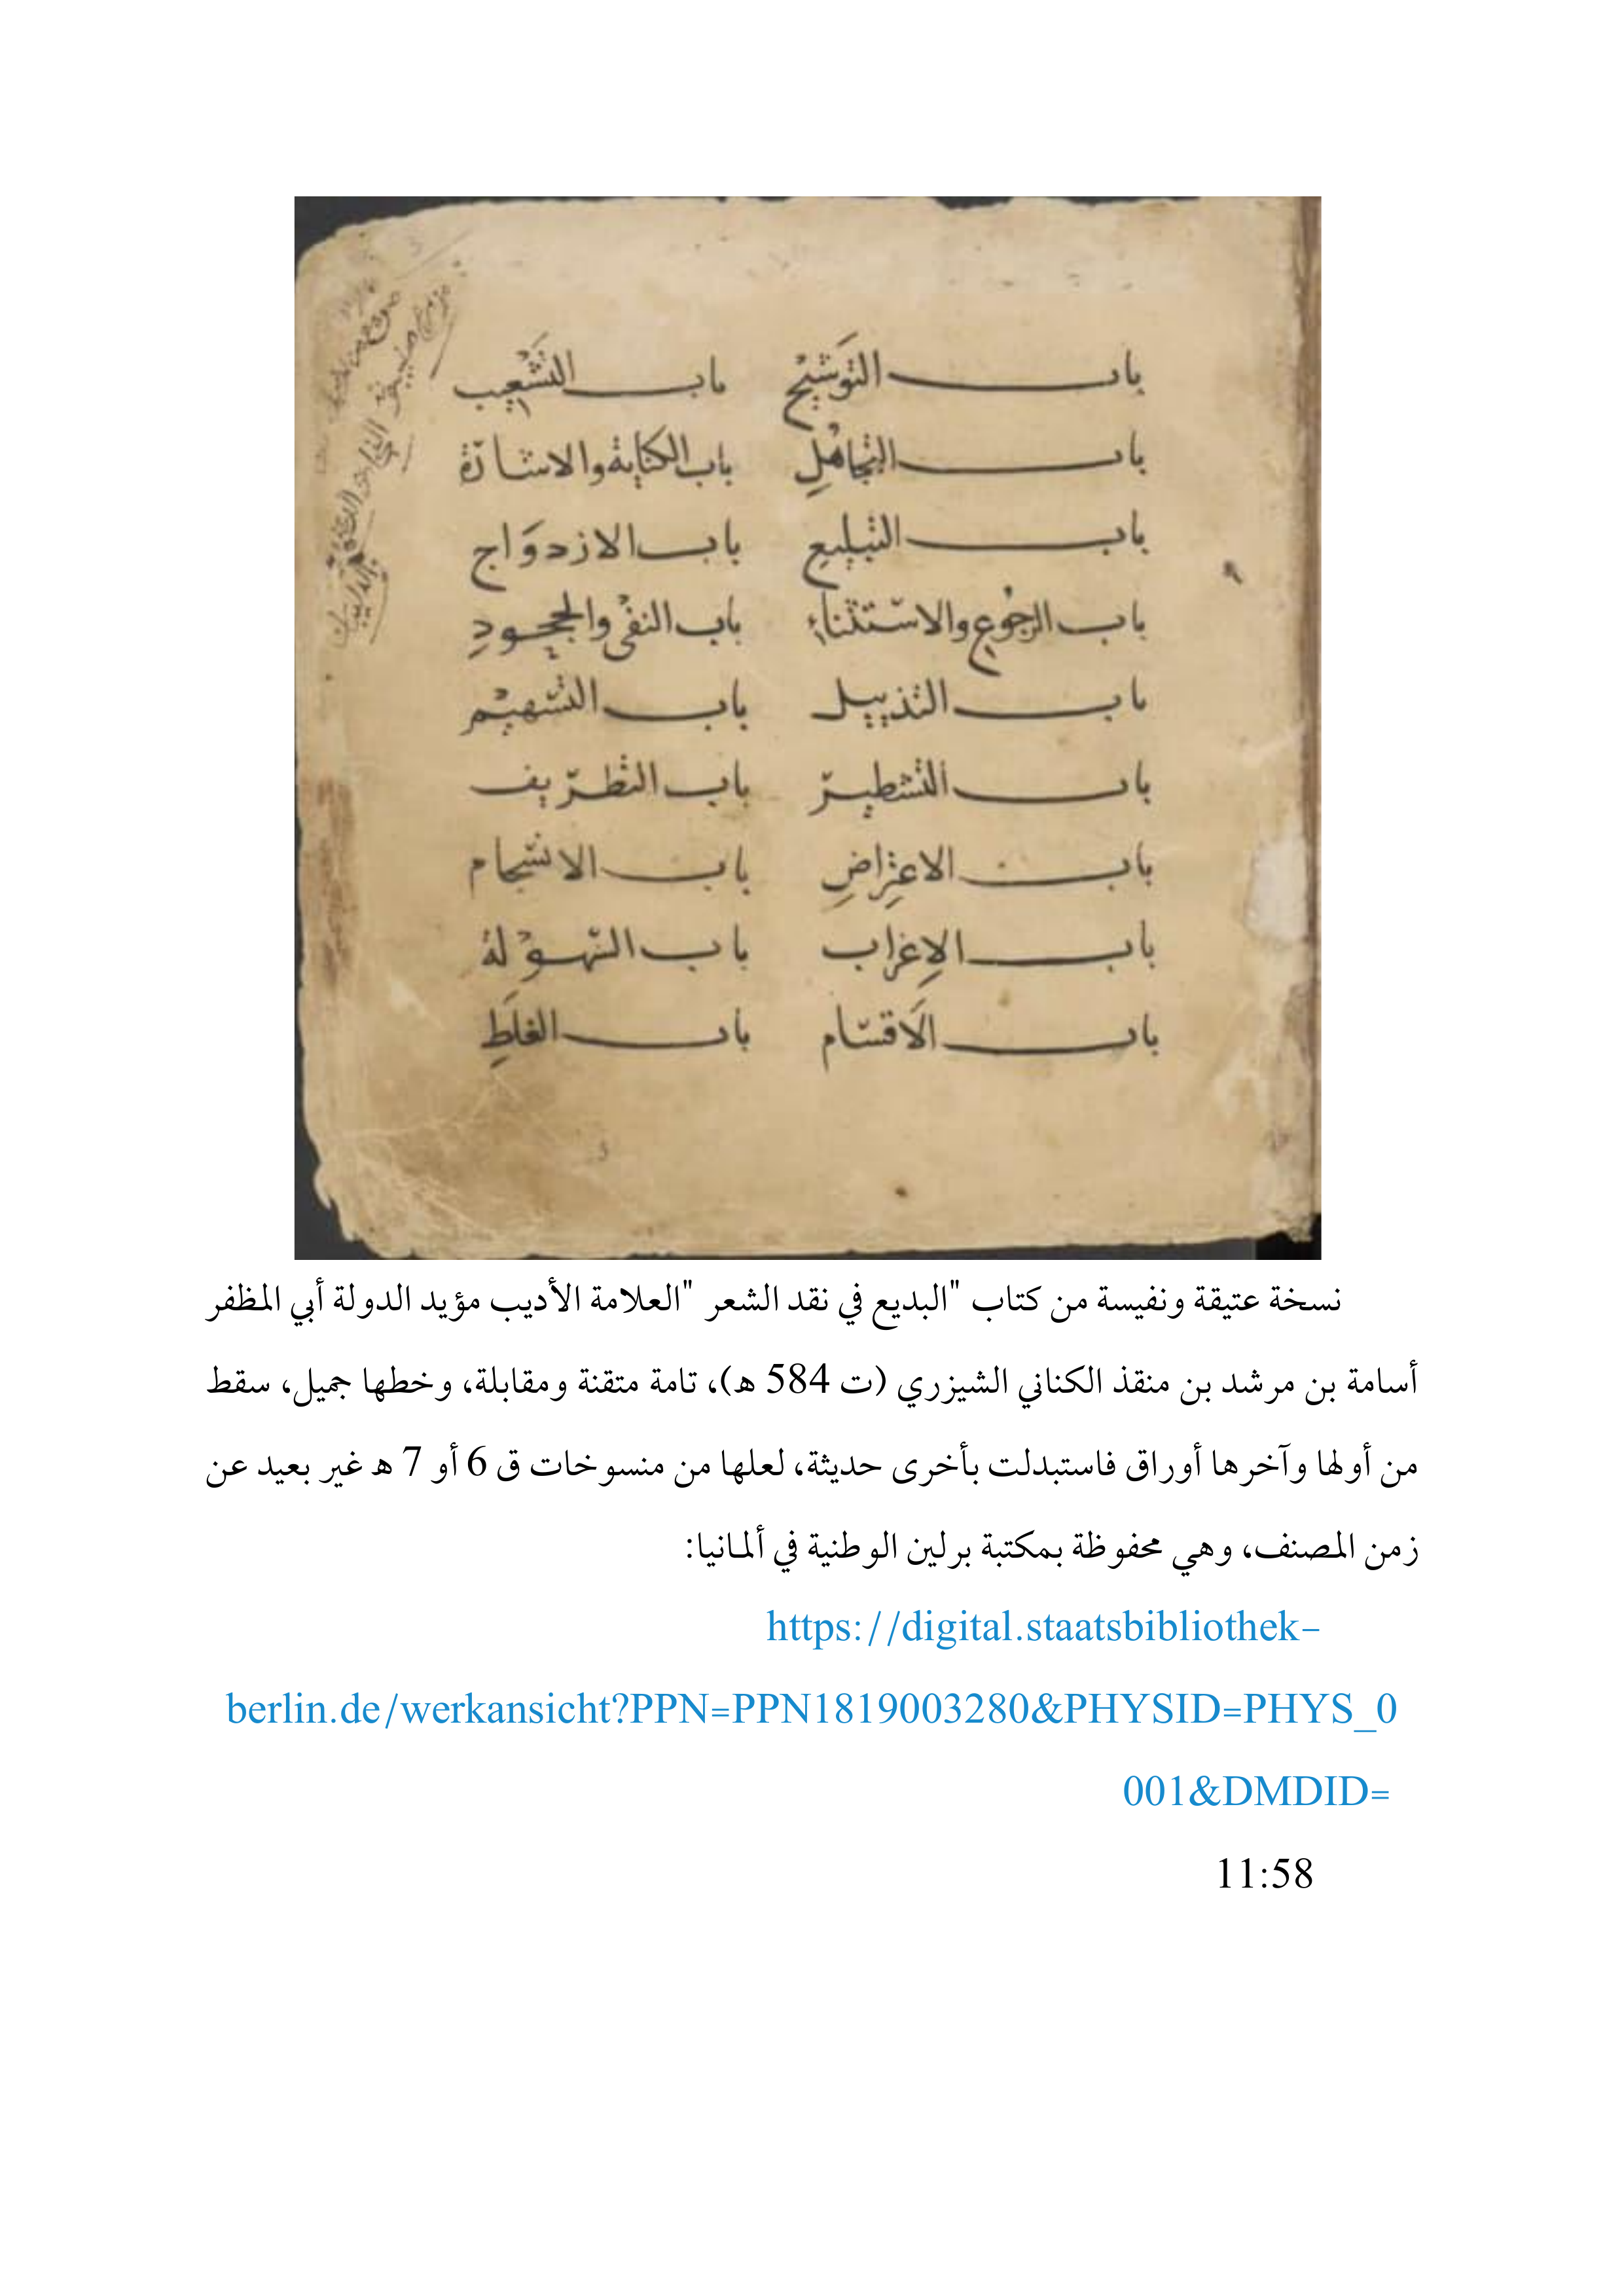 باب التَوشيح باب التَشْعِيب
باب التجاهُلِ باب الكناية والاشارَة
باب التبليع باب الازدوَاج
باب الرجُوع والاستثناء باب النفْى والجحودِ
باب التذييل باب التسهيم
باب التشطير باب التطريف
باب الاعتِراضِ باب الانسجام
باب الإغراب باب السهولة
باب الَاقسام باب الغلَطِ
نسخة عتيقة ونفيسة من كتاب "البديع في نقد الشعر "العلامة الأديب مؤيد الدولة أبي المظفر
أسامة بن مرشد بن منقذ الكناني الشيزري (ت 584 ه)، تامة متقنة ومقابلة، وخطها جميل، سقط
من أولها وآخرها أوراق فاستبدلت بأخرى حديثة، لعلها من منسوخات ق 6 أو 7 ه غير بعيد عن
زمن المصنف، وهي محفوظة بمكتبة برلين الوطنية في ألمانيا:
https://digital.staatsbibliothek-
berlin.de/werkansicht?PPN=PPN1819003280&PHYSID=PHYS_0
001&DMDID=
11:58